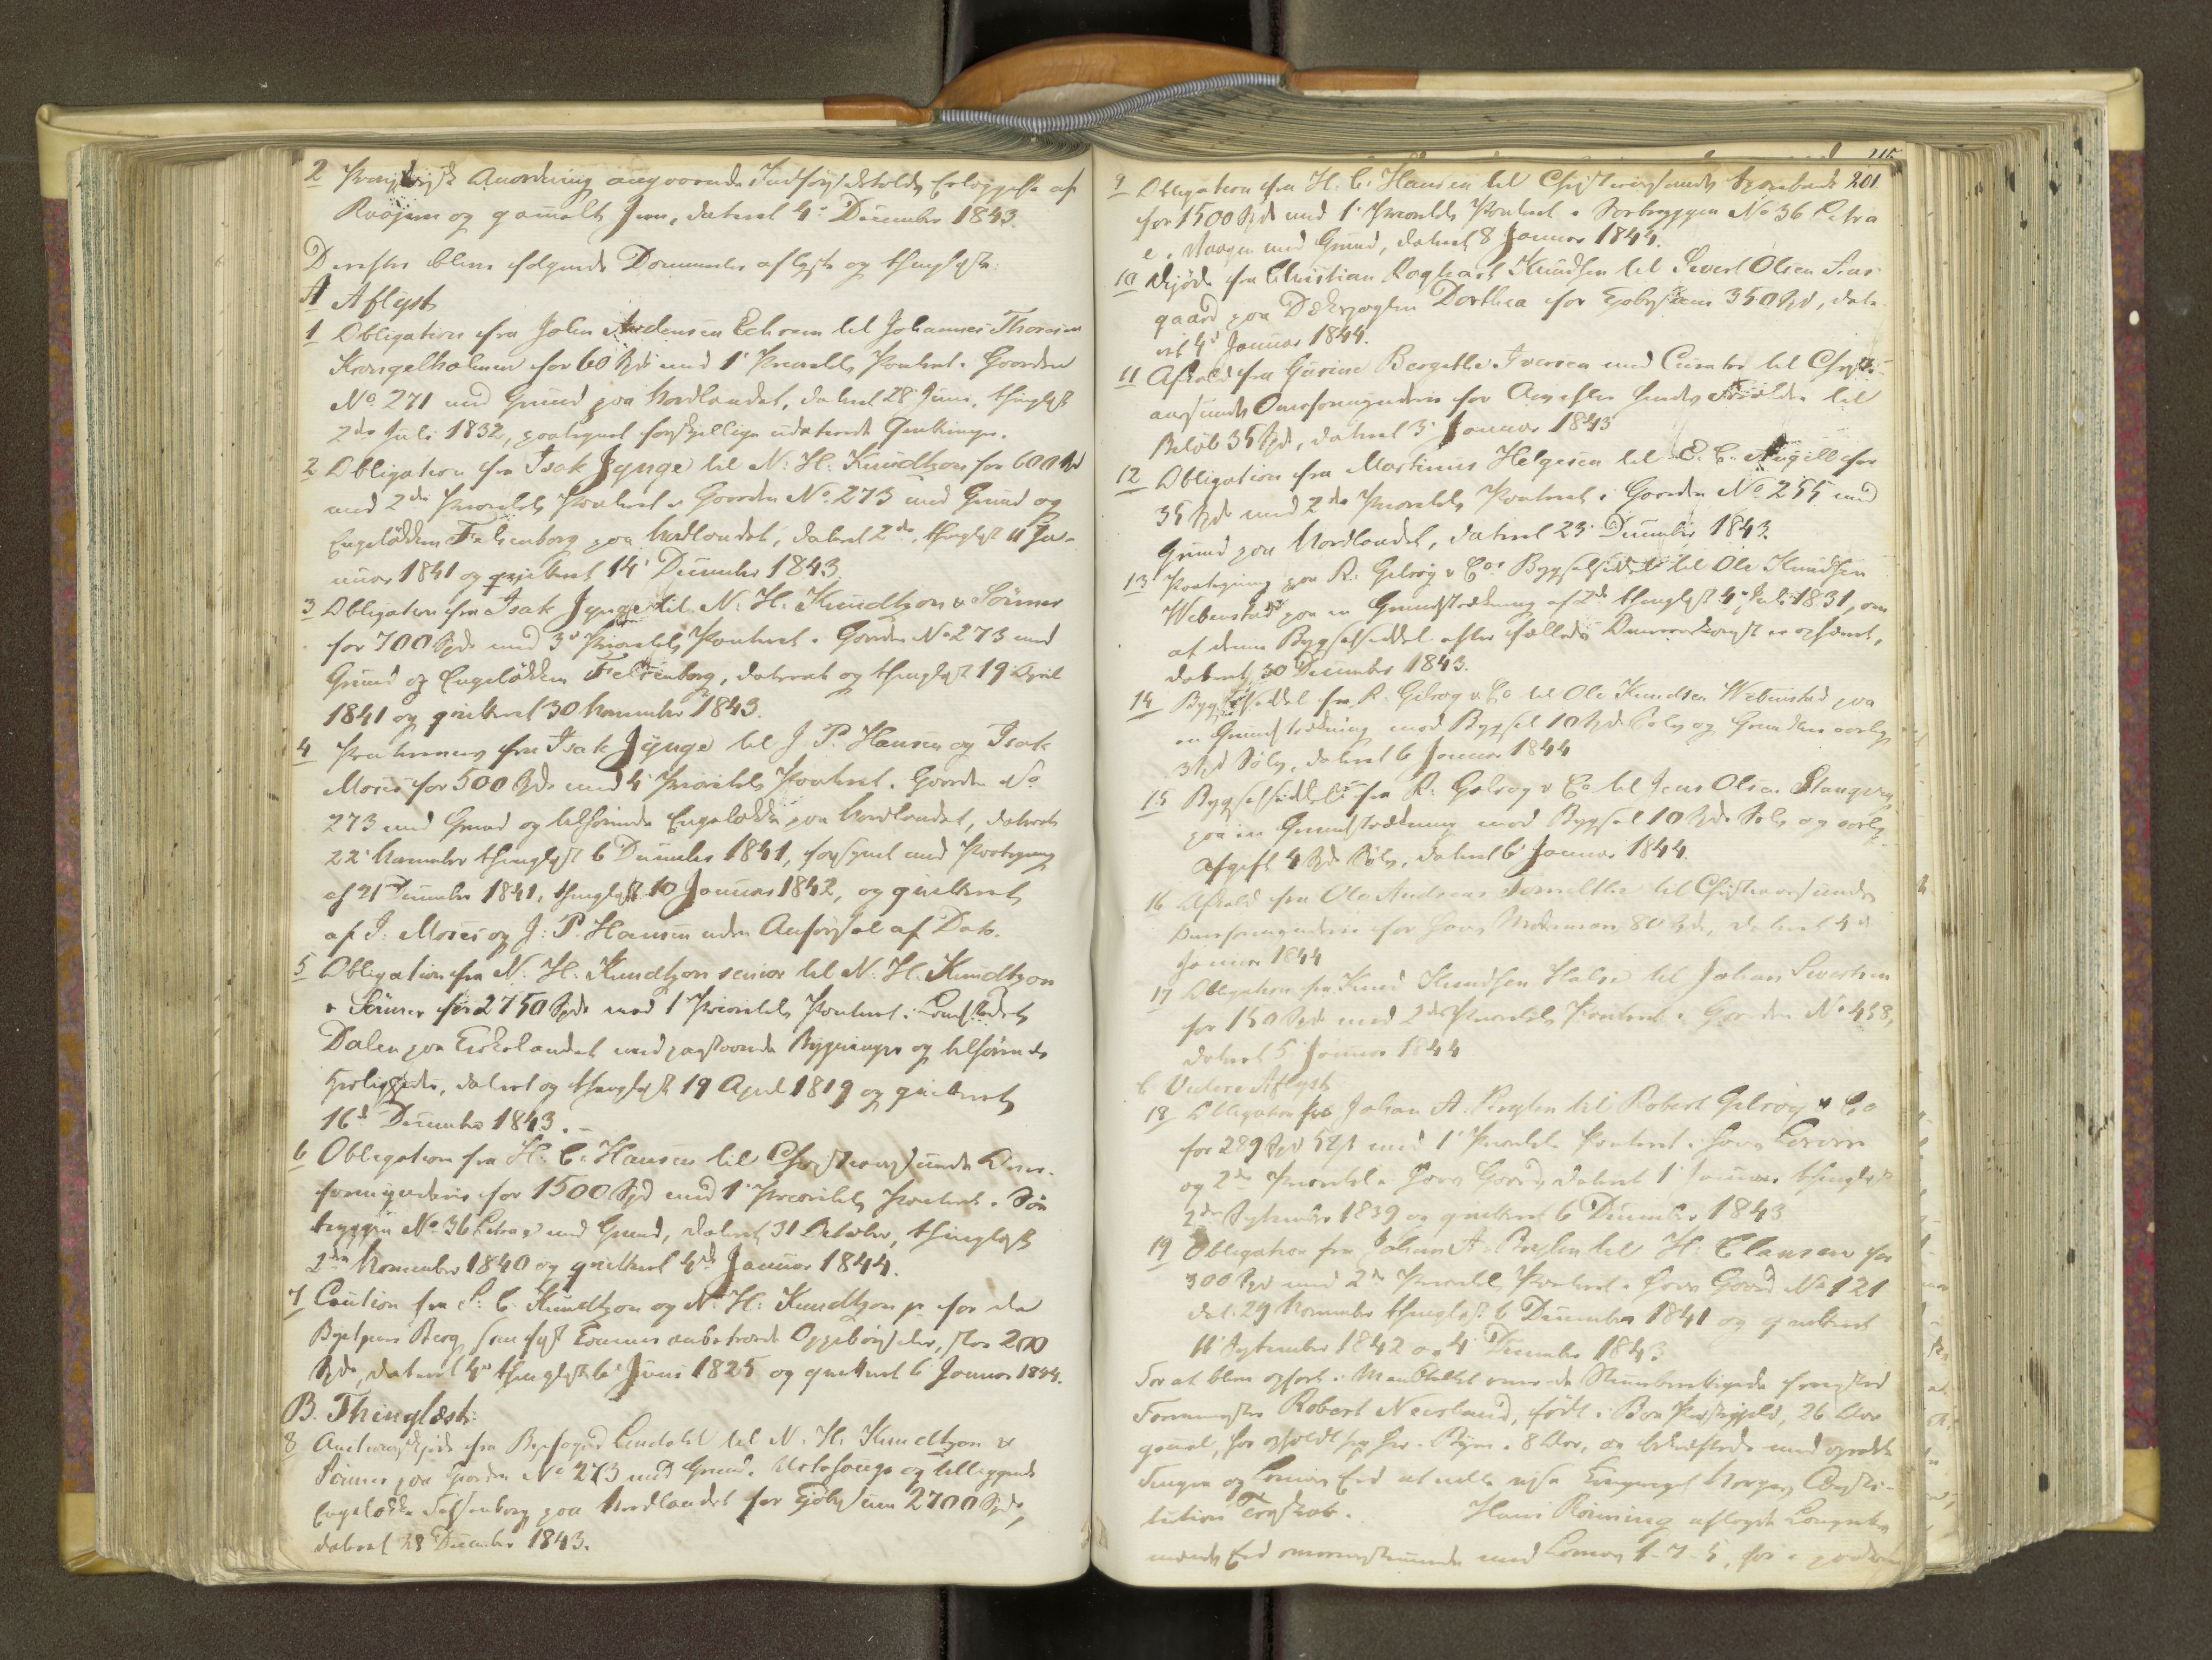 2 Provisorisk Anordning angaaende Indførselstolds Erlæggelse af
Raajern og gammelt Jern, dateret 4de December 1843.
Derefter bleve følgende Documenter aflyste og thinglyste:
A Aflyst
1 Obligation fra John Andensen Echrem til Johannes Thoresen
Krongelholmen for 60 Spd med 1ste Prioritets Panteret i Gaarden
No 271 med Grund paa Nordlandet, dateret 28 Juni, thinglyst
2den Juli 1832, paategnet forskjellige udaterede Qvitteringer.
2 Obligation fra Isak Jynge til N: H: Knudtzon for 600 Spd
med 2den Prioritets Panteret i Gaarden No 273 med Grund og
Engeløkken Felsenborg paa Nordlandet, dateret 2den, thinglyst 11 Ja-
nuar 1841 og qvitteret 14 December 1843.
3 Obligation fra Isak Jynge til N: H. Knudtzon & Sønner
for 700 Spd med 3die Prioritets Panteret i Gaarden No 273 med
Grund og Engeløkken Felsenborg, dateret og thinglyst 19 April
1841 og qvitteret 30 November 1843.
4 fra Isak Jynge til J. P. Hansen og Isak
Moses for 500 Spd med 4de Prioritets Panteret i Gaarden No
273 med Grund og tilhørende Engeløkke paa Nordlandet, dateret
22 November thinglyst 6 December 1841, forsynet med Paategning
af 21 December 1841, thinglyst 10 Januar 1842, og qvitteret
af I: Moses og J: P. Hansen uden Anførsel af Dato.
5 Obligation fra N. H: Knudtzon senior til N. H. Knudtzon
& Sønner for 2750 Spd med 1 Prioritets Panteret i Landstedet
Dalen paa Kirkelandet med paastaaende Bygninger og tilhørende
Herligheder, dateret og thinglyst 19 April 1819 og qvitteret
16de December 1843.
6 Obligation fra H: C: Hansen til Christianssunds Over-
formynderie for 1500 Spd med 1 Prioritets Panteret i Sør
bryggen No 36 Litra e med Grund, dateret 31 October, thinglyst
2den November 1840 og qvitteret 4de Januar 1844.
7 Caution fra S: C. Knudtzon og N: H: Knudtzon jr for de
Berg som Commune anbetroede Oppebørseler, stor 200
Spd, dateret 4de thinglyst 6 Juni 1825 og qvitteret 6 Januar 1844.
B. Thinglæst:
8 Auctionsskjøde fra Byfoged Lindahl til N. H. Knudtzon &
Sønner paa Gaarden No 273 med Grund, Urtehauge og tilliggende
Engeløkke Felsenborg paa Nordlandet for Kjøbesum 2700 Spd,
dateret 28 December 1843.
215
201
9 Obligation fra H. C. Hansen til Christianssunds Sparebank
for 1500 Spd med 1 Prioritets Panteret i Sørbryggen No 36 Litra
e i Vaagen med Grund, dateret 8 Januar 1844.
10 Skjøde fra Christian Roghart Knudsen til Sivert Olsen
gaard paa Dæksjagten Dorthea for Kjøbesum 350 Spd, date-
ret 4de Januar 1844.
11 Afkald fra Gurine Bergitte Iversen med Curator til Christi-
anssunds Overformynderie for Arv efter hendes Forældre til
Beløb 35 Spd, dateret 3 Januar 1843
12 Obligation fra Martinus Helgesen til E. C. Angell for
35 Spd med 2den Prioritets Panteret i Gaarden No 255 med
Grund paa Nordlandet, dateret 23 December 1843.
13 Paategning paa R. Gelroy & Cos Bygselseddel til Ole Knudsen
Webenstad paa en Grundstrækning af 2den thinglyst 4de Juli 1831, om
at denne Bygselseddel efter fælleds Overeenskomst er ophævet,
dateret 30 December 1843.
14 Bygselseddel fra R. Gelroy & Co til Ole Knudsen Webenstad paa
en Grundstrækning mod Bygsel 10 Spd Sølv og Grundleie aarlig
3 Spd Sølv, dateret 6 Januar 1844
15 Bygselseddel fra R. Gelroy & Co til Jens Olsen Stangvig
paa en Grundstrækning mod Bygsel 10 Spd Sølv og aarlig
Afgift 4 Spd Sølv, dateret 6 Januar 1844.
16 Afkald fra Ole Andreas til Christianssunds
Overformynderie for hans 80 Spd, dateret 4de
Januar 1844
17 Obligation fra Knud Knudsen Halse til Johan Sivertsen
for 150 Spd med 2den Prioritets Panteret i Gaarden No 458,
dateret 5 Januar 1844
C Videre Aflyst
18 Obligation fra Johan A. til Robert Gelroy & Co
for 289 Spd med 1 Prioritet Panteret i hans
og 2den Prioritet i hans Gaard, dateret 1 Januar thinglyst
2den September 1839 og qvitteret 6 December 1843
19 Obligation fra Johan A. til H: Clausen for
300 Spd med 2den Prioritets Panteret i hans Gaard No 121
dat. 29 November thinglyst 6 December 1841 og qvitteret
11 September 1842 og 4 December 1843.
For at blive opført i Mandtallet over de Stemmeberettigede fremstod
Robert Neusland, født i Præstegjeld, 26 Aar
gammel, har opholdt sig her i Byen i 8 Aar, og bekræftede med oprakte
Fingre og Lovens Eed at ville vise Kongeriget Norges Consti-
tution Troskab. Hans Rønning aflagde
Eed overeensstemmende med Lovens 1-7-5, for i